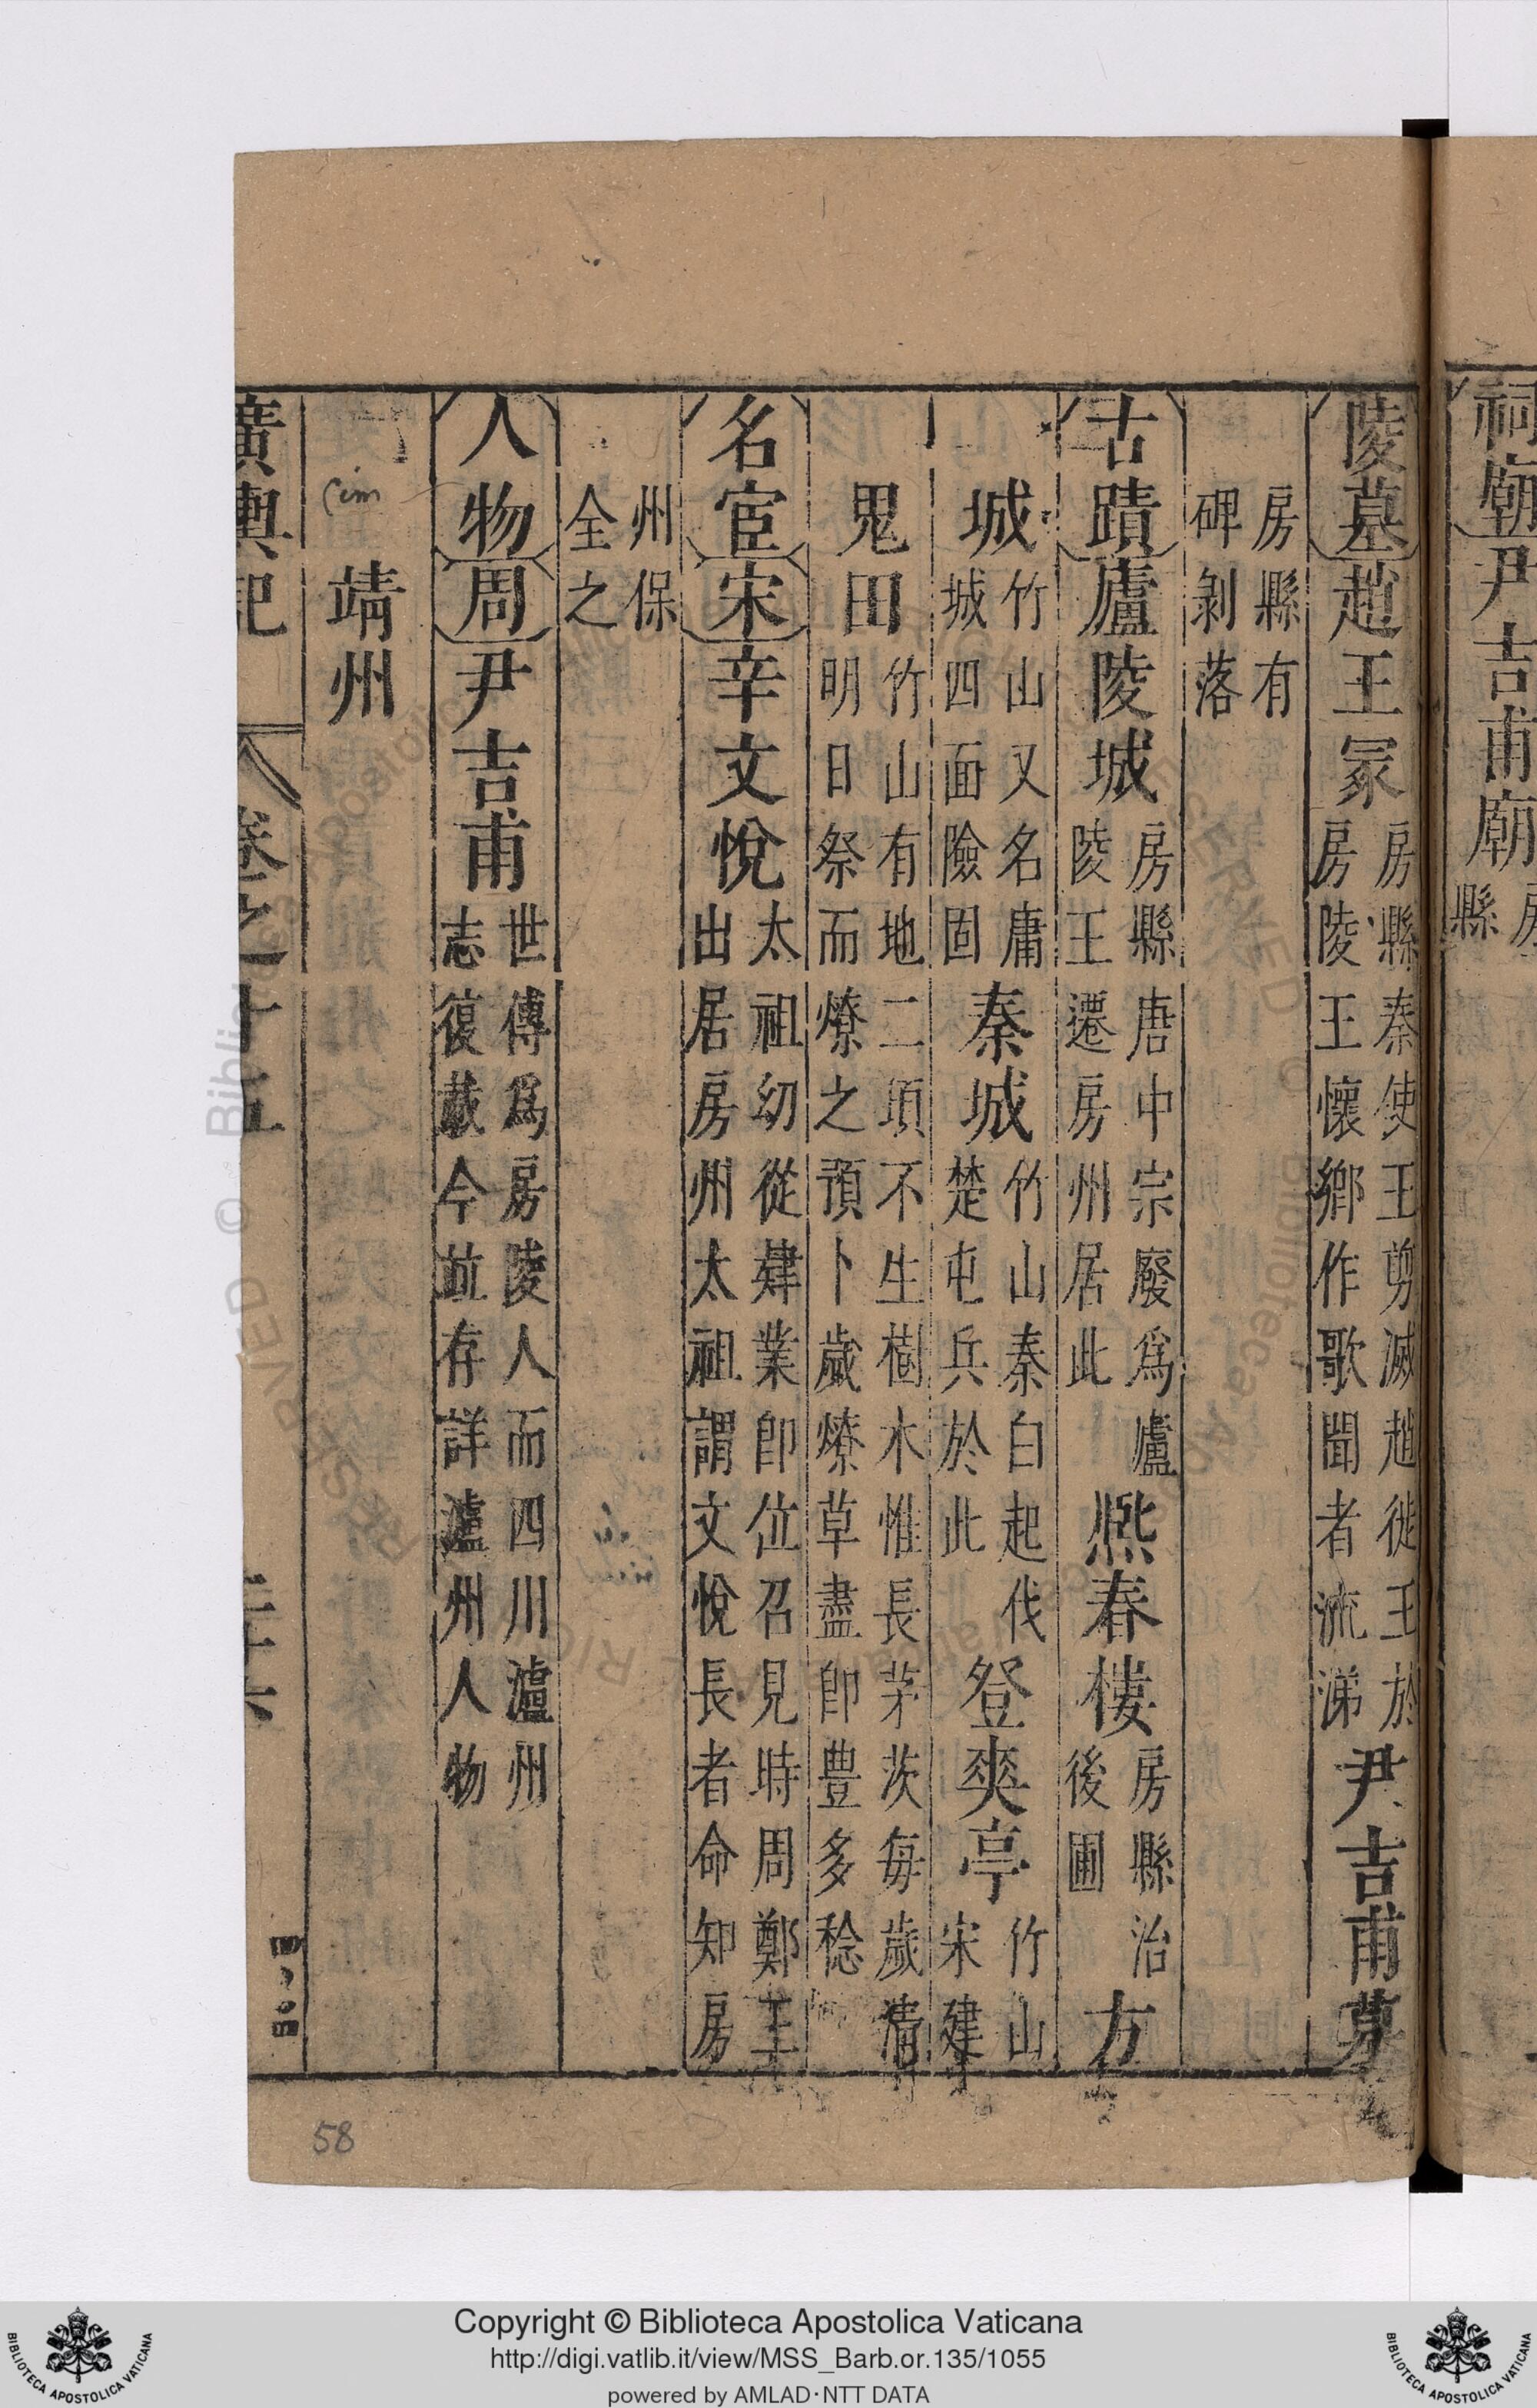 祠廟尹吉甫廟房縣
陵墓趙王冢房縣秦使王剪滅趙徙王於房陵王懷鄉作歌聞者流涕尹吉甫墓
房縣有碑剝落
古蹟廬陵城房縣唐中宗廢為廬陵王遷房州居此熈春樓房縣治後圃方
城竹山又名庸城四面險固秦城竹山秦白起伐楚屯兵於此登爽亭竹山宋建
鬼田竹山有地二項不生樹木惟長茅茨每歲清明日祭而燎之預卜歲燎草盡即豊多稔
名宦宋辛文悅太祖幼從肄業即位召見時周鄭王出居房州太祖謂文悅長者命知房
州保全之
人物周尹吉甫世傳為房陵人而四川瀘州志復載今並存詳瀘州人物
靖州
cim
廣輿記 卷之十五
58
Copyright © Biblioteca Apostolica Vaticana
http://digi.vatlib.it/view/MSS_Barb.or.135/1055
powered by AMLAD·NTT DATA
BIBLIOTECA APOSTOLICA VATICANA
BIBLIOTECA APOSTOLICA VATICANA